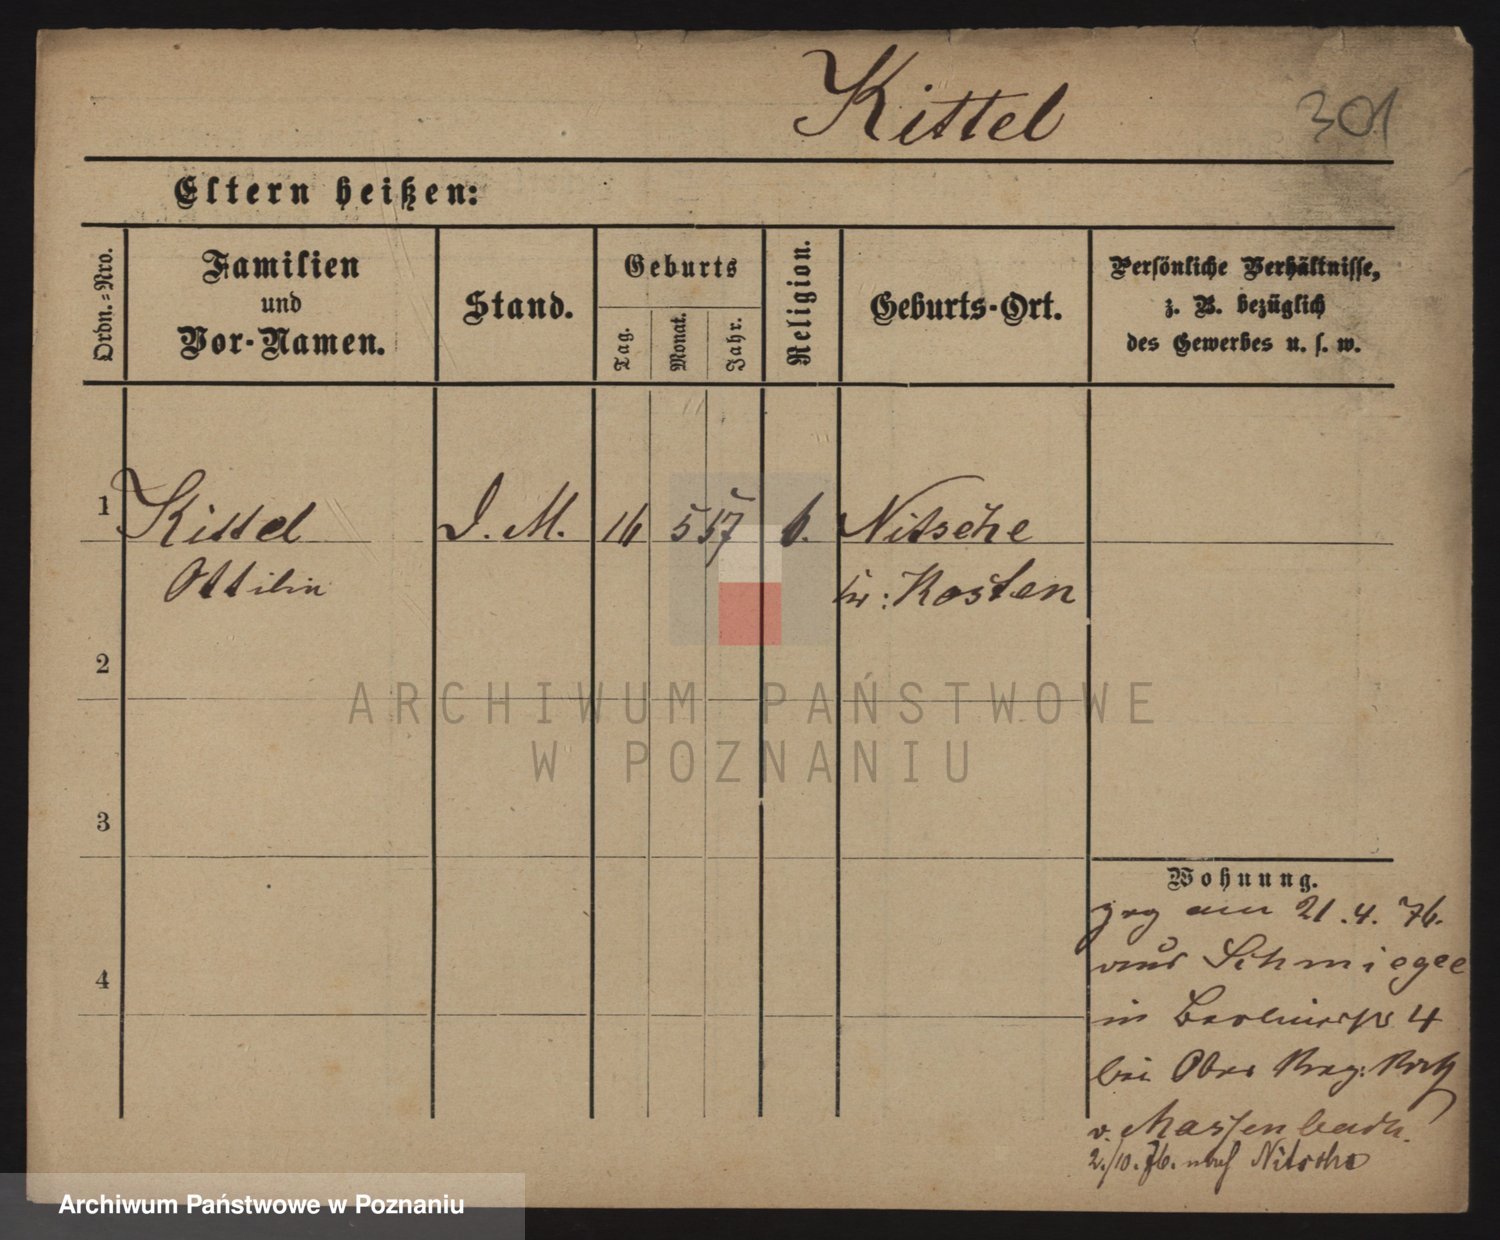 Kittel
301
Eltern heißen:
Ordn.=Nro.
Familien
und
Vor-Namen.
Stand.
Geburts
Tag.
Monat.
Jahr.
Religion.
Geburts-Ort.
Persönliche Verhältnisse,
z. B. bezüglich
des Gewerbes u. s. w.
1 Kittel D. M. 16 5 57 k. Nitsche
Ottilie Kr: Kosten
2
3
4
Wohnung.
zog am 21.4.76.
aus Schmiegel
in Berlinerstr 4
bei Ober Reg: Rath
v. Massenbach.
2./10.76. nach Nitsche
ARCHIWUM PAŃSTWOWE
W POZNANIU
Archiwum Państwowe w Poznaniu